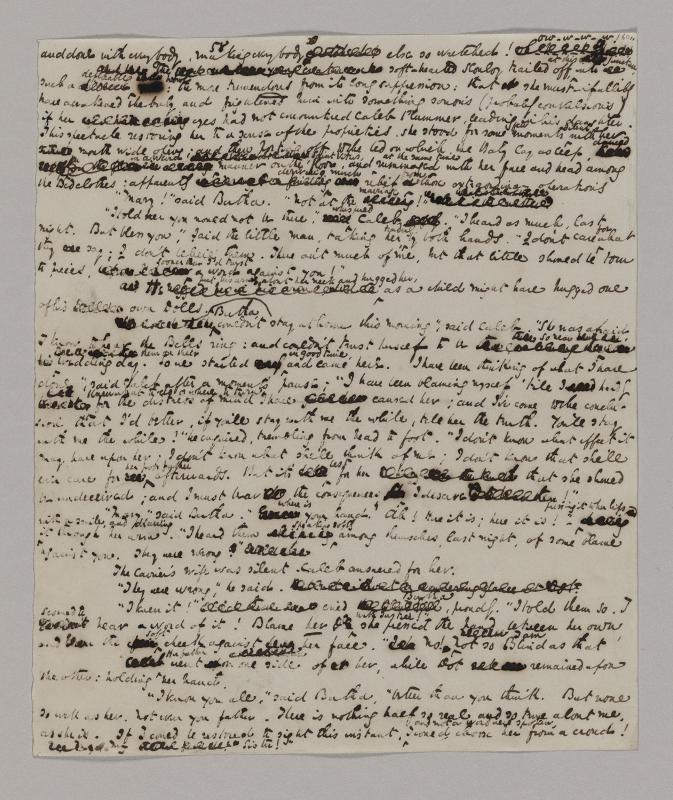 and done with everybody, making everybody else so wretched! ow-w-w-w!
soft-hearted Slowboy trailed off at this juncture into
such a deplorable howl; the more tremendous from its long suppression: that she must infallibly
have awakened the baby, and frightened him into something serious (probably convulsions)
if her eyes had not encountered Caleb Plummer, leading in his daughter.
This spectacle restoring her to a sense of the proprieties, she stood for some few moments silent with her
mouth wide open; and then, posting off to the bed on which the Baby lay asleep, danced
in a weird, Saint Vitus manner on the floor, and at the same time rummaged with her face and head among
the bedclothes: apparently deriving much relief from those extraordinary operations
"Mary!" said Bertha. "Not at the marriage!"
"I told her you would not be there," whispered Caleb. "I heard as much, last
night. But bless you," said the little man, taking her tenderly by both hands. "I don't care for what
they say; I don't believe them. There ain't much of me, but that little should be torn
to pieces, sooner than I'd trust a word against you!"
He put his arms about her neck and hugged her, as a child might have hugged one
of his own dolls.
"Bertha couldn't stay at home this morning," said Caleb. "She was afraid,
I know to hear the Bells ring: and couldn't trust herself to be so near them on
his wedding day. So we started in good time and came here. I have been thinking of what I have
done," said Caleb after a moment's pause; "I have been blaming myself 'till I hardly
knew what to do or where to turn, for the distress of mind I have caused her; and I've come to the conclu-
-sion that I'd better, if you'll stay with me the while, tell her the truth. You'll stay
with me the while?" he enquired, trembling from head to foot. "I don't know what effect it
may have upon her; I don't know what she'll think of me; I don't know that she'll
ever care for her poor father afterwards. But it's best for her that she should
be undeceived; and I must bear the consequences as I deserve!"
"Mary," said Bertha. "where is your hand? Ah! Here it is; here it is!" pressing it to her lips
with a smile, and drawing
it through her arm. "I heard them speaking softly among themselves, last night, of some blame
against you. They were wrong."
The Carrier's wife was silent. Caleb answered for her.
"They were wrong," he said.
"I knew it!" cried Bertha, proudly. "I told them so. I
scorned to hear a word of it! Blame her with justice!" she pressed the hand between her own
and the soft cheek against her face. "No! Not so Blind as that!"
Her father went upon one side of her, while Dot remained upon
the other: holding her hand.
"I know you all," said Bertha, "better than you think. But none
so well as her. Not even you father. There is nothing half so real and so true about me,
as she is. If I could be restored to sight this instant, and not a word were spoken, I could choose her from a crowd!
my Sister!"